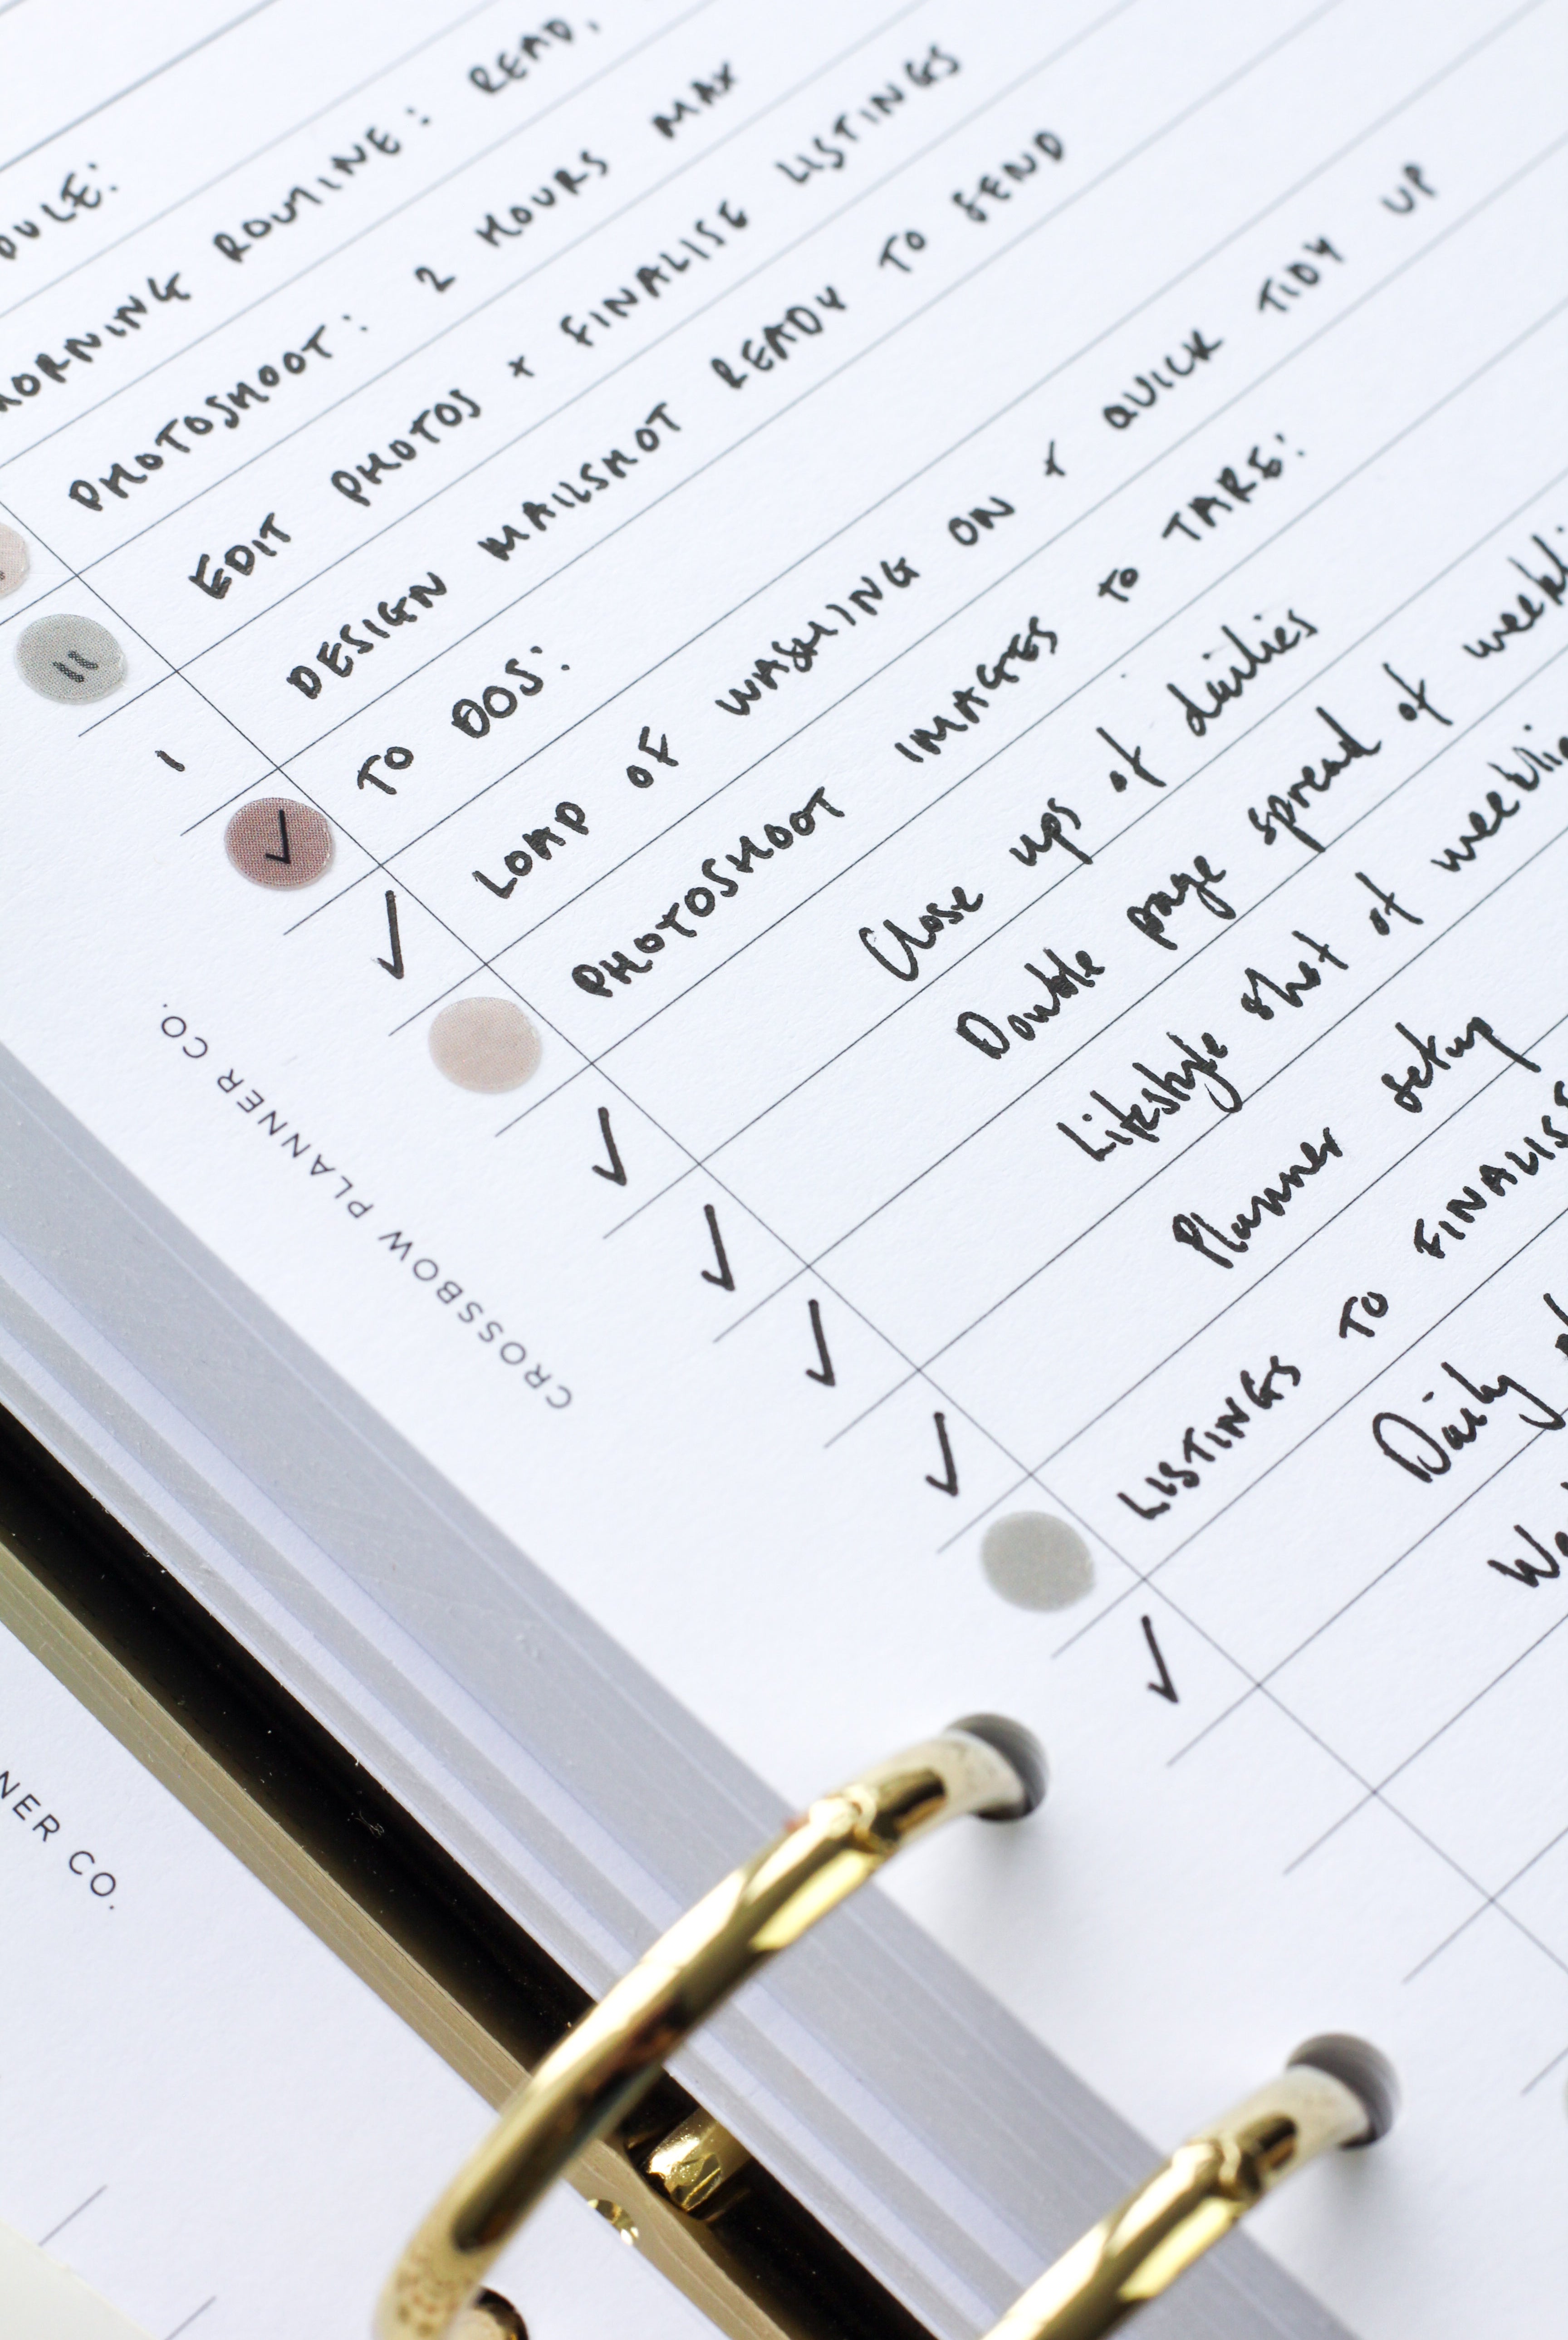 DULE:
MORNING ROUTINE: READ,
PHOTOSHOOT: 2 HOURS MAX
11 EDIT PHOTOS + FINALISE LISTINGS
1 DESIGN MAILSHOT READY TO SEND
✓ TO DOS:
✓ LOAD OF WASHING ON + QUICK TIDY UP
PHOTOSHOOT IMAGES TO TAKE:
✓ Close ups of dailies
✓ Double page spread of weekli
✓ Lifestyle shot of weeklie
✓ Planner setup
LISTINGS TO FINALISE
✓ Daily
CROSSBOW PLANNER CO.
NER CO.